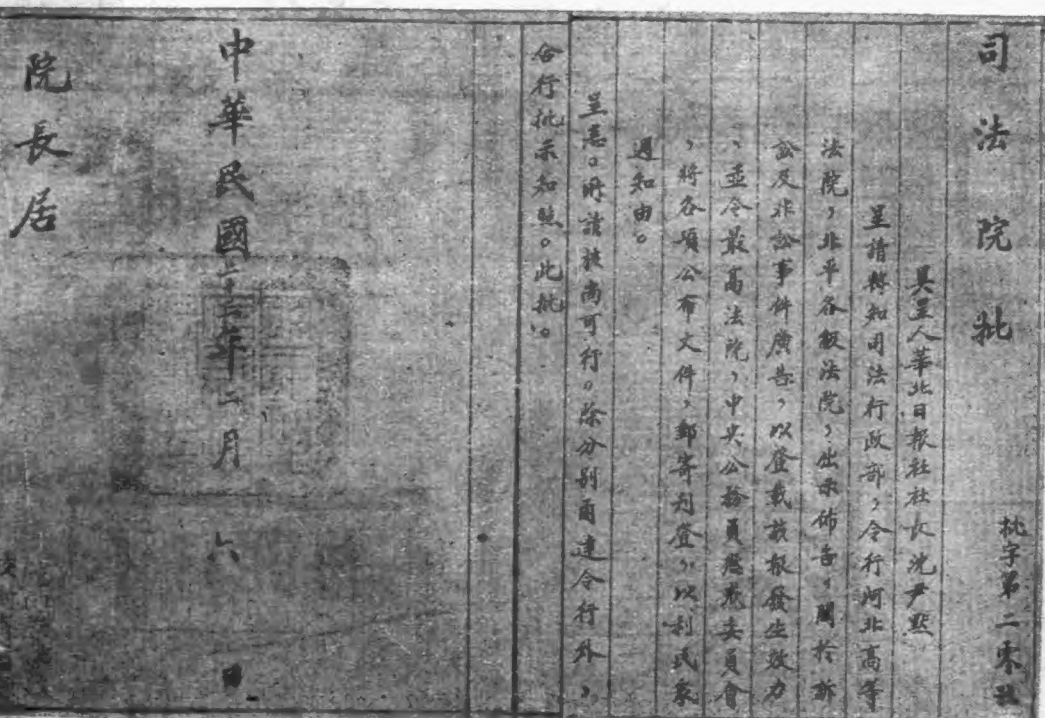 司法院批
批字第二零號
具呈人華北日報社社長沈尹默
呈請轉知司法行政部，令行河北高等
法院，北平各級法院，出示佈告，關於訴
訟及非訟事件廣告，以登載該報發生效力
，並令最高法院，中央公務員懲戒委員會
，將各項公布文件，郵寄刊登，以利民衆
週知由。
呈悉。所請核尚可行。除分別函達令行外，
合行批示知照。此批。
中華民國二十六年二月六日
院長居